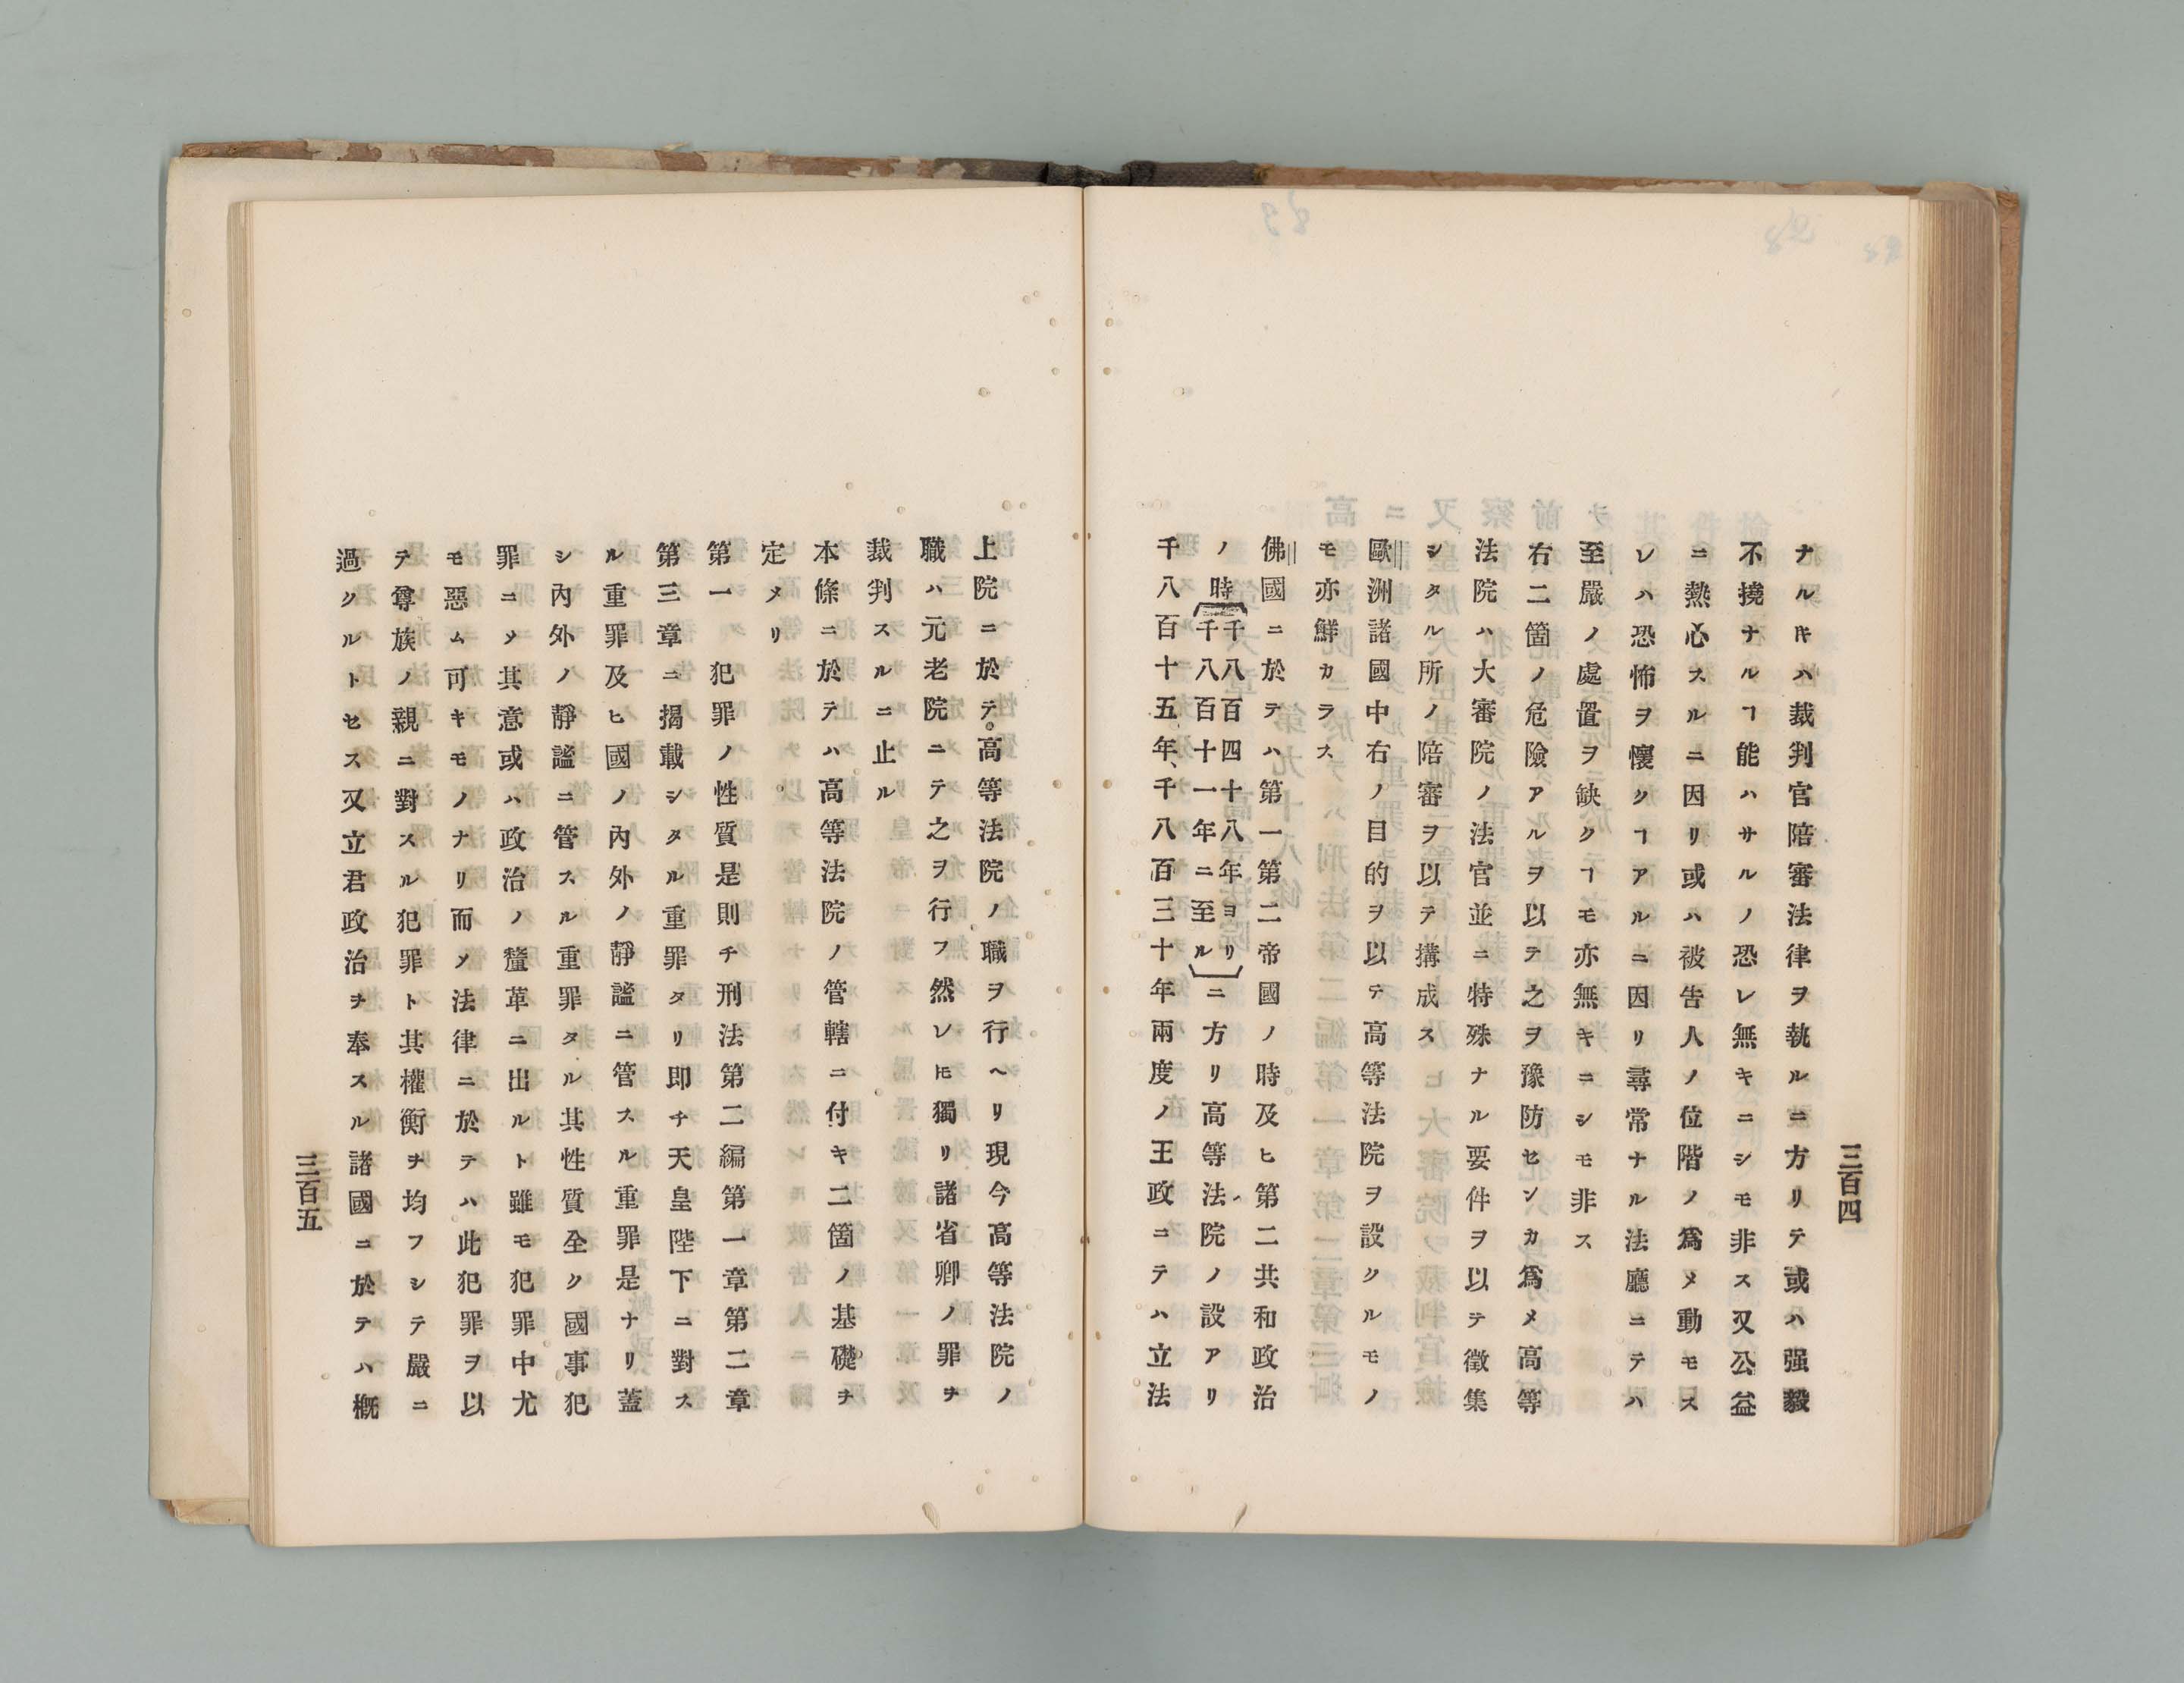 三百四
ナルキハ裁判官陪審法律ヲ執ルニ方リテ或ハ强毅
不撓ナルヿ能ハサルノ恐レ無キニシモ非ス又公益
ニ熱心スルニ因リ或ハ被吿人ノ位階ノ爲メ動モス
レハ恐怖ヲ懷クヿアルニ因リ尋常ナル法廳ニテハ
至嚴ノ處置ヲ缺クヿモ亦無キニシモ非ス
右二箇ノ危險アル者ヲ以テ之ヲ豫防センカ爲メ高等
法院ハ大審院ノ法官並ニ特殊ナル要件ヲ以テ徵集
シタル所ノ陪審ヲ以テ搆成ス
歐洲諸國中右ノ目的ヲ以テ高等法院ヲ設クルモノ
モ亦鮮カラス
佛國ニ於テハ第一第二帝國ノ時及ヒ第二共和政治
ノ時〔千八百四十八年ヨリ千八百十一年ニ至ル〕ニ方リ高等法院ノ設アリ
千八百十五年、千八百三十年兩度ノ王政ニテハ立法
上院ニ於テ高等法院ノ職ヲ行ヘリ現今高等法院ノ
職ハ元老院ニテ之ヲ行フ然レ𪜈獨リ諸省卿ノ罪ヲ
裁判スルニ止ル
本條ニ於テハ高等法院ノ管轄ニ付キ二箇ノ基礎ヲ
定メリ
第一 犯罪ノ性質是則チ刑法第二編第一章第二章
第三章ニ揭載シタル重罪タリ即チ天皇陛下ニ對ス
ル重罪及ヒ國ノ內外ノ靜謐ニ管スル重罪是ナリ蓋
シ內外ノ靜謐ニ管スル重罪タル其性質全ク國事犯
罪ニメ其意或ハ政治ノ釐革ニ出ルト雖モ犯罪中尤
モ惡ム可キモノナリ而メ法律ニ於テハ此犯罪ヲ以
テ尊族ノ親ニ對スル犯罪ト其權衡ヲ均フシテ嚴ニ
過クルトセス又立君政治ヲ奉スル諸國ニ於テハ概
三百五